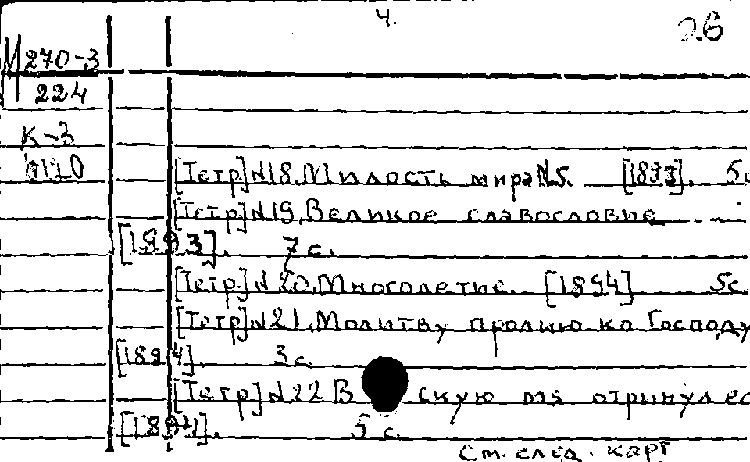 4.
26
М 270-3
224
К-3
[Тетр] №18. Милость мира №5. [1893]. 5
[Тетр] №19. Великое славословие
[1893]. 7 с.
[Тетр] №20. Многолетие. [1894] 5с.
[Тетр] №21. Молитву пролию ко Господу
[1894]. 3 с.
[Тетр] №22 В скую мя отринул ес
[1894]. 5 с.
См. след. карт